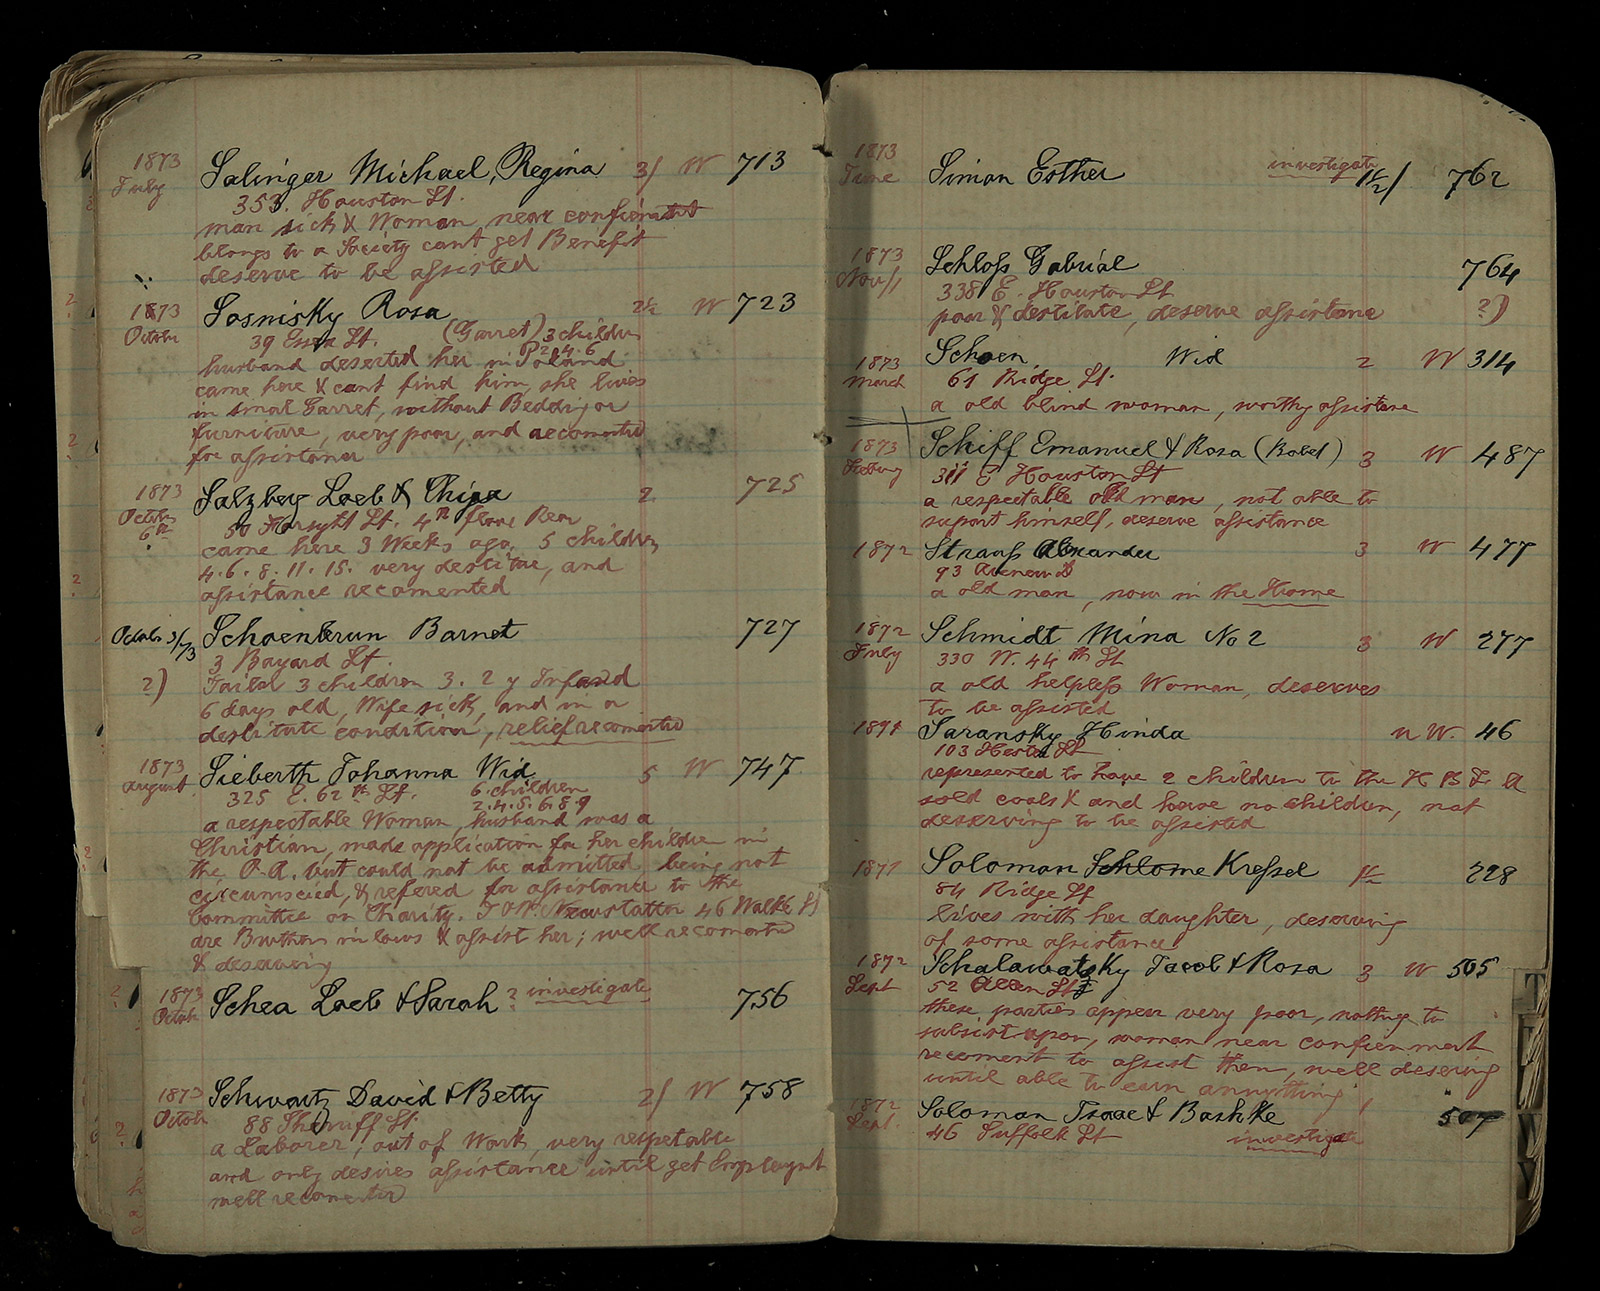 1873
July
Salinger Michael, Regina 3/ W 713
353. Houston St.
man sick & Woman near confinment
blongs to a Society cant get Benefit
deserve to be assisted
1873
October
Sosnisky Rosa 2½ W 723
39 Essex St. (Garret) 3 children
2 4 6
husband deserted her in Poland
came here & cant find him, she lives
in smal Garret, without Bedding or
furniture, very poor, and recomented
for assistance
1873
October
6th
Salzberg Loeb & Chiga 2 725
50 Forsyht St. 4th floor Rear
came here 3 Weeks ago. 5 children
4. 6. 8. 11. 15. very destitue, and
assistance recomented
October 3/73
Schoenbrun Barnet 727
3 Bayard St.
2) Tailor 3 children 3. 2 y Infand
6 days old, Wife sick, and in a
destitute condition, relief recomented
1873
August
Sieberth Johanna Wid 5 W 747
325 E. 62th St. 6 children
2. 4. 5. 6. 8. 9
a respectable Woman, husband was a
Christian, made application for her childen in
the O. A. but could not be admitted being not
circumscied, & refered for assistance to the
Committee on Charity. Neustatter 46 Walke St
are Brothers in laws & assist her; well recomented
& deserving
1873
Octob
Schea Loeb & Sarah ? investigate 756
1873
Octob
Schwartz David & Betty 2/ W 758
88 Sheriff St.
a Laborer, out of Work, very respetable
and only desires assistance until get Employmt
well recomented
1873
June
Simon Esther investigate 1½/ 762
1873
Nov/1
Schloss Gabrial 764
338 E. Houston St
poor & destitute, deserve assistance 2)
1873
March
Schoen, Wid 2 W 314
61 Ridge St.
a old blind woman, worthy assistance
1873
Schiff Emanuel & Rosa (Babet) 3 W 487
311 E Houston St
a respectable old man, not able to
suport himself, deserve assistance
1872
Strauss Alexander 3 W 477
93 Avenew D
a old man, now in the Home
1872
July
Schmidt Mina No 2 3 W 277
330 W. 44th St
a old helpless Woman, deserves
to be assisted
1871
Saransky Hinda n W. 46
103 Hester St
represented to have 2 children to the
sold coals & and have no children, not
deserving to be assisted
1871
Soloman Schlome Kressel 1½ 228
84 Ridge St
lives with her daughter, deserving
of some assistance
1872
Sept
Schalawatsky Jacob & Rosa 3 W 505
52 Allen St
these parties appear very poor, nothing to
subsist upon, woman near confienment
recoment to assist them, well desering
until able to earn annything
1872
Sept.
Soloman Isaac & Bashke 1 507
46 Suffolk St investigate